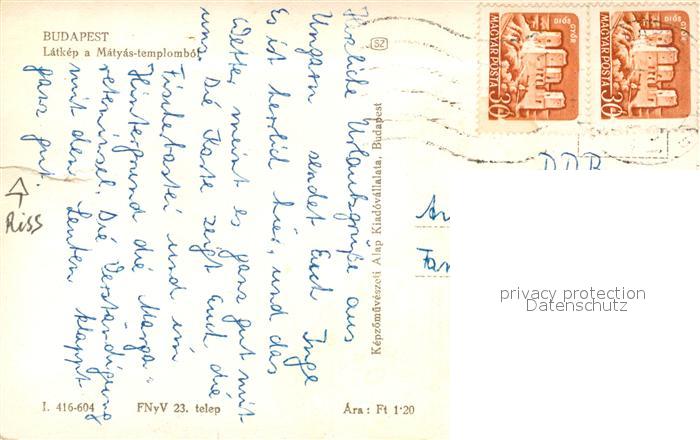 BUDAPEST
Látkép a Mátyás-templomból
SZ
DIÓSGYŐR
MAGYAR POSTA
30
DIÓSGYŐR
MAGYAR POSTA
30
DDR
Herzliche Urlaubsgrüße aus
Ungarn sendet Euch Inge
Es ist herrlich hier, und das
Wetter meint es ganz gut mit
uns. Die Karte zeigt auch die
Fischerbastei und im
Hintergrund die Marga-
reteninsel. Die Verständigung
mit den Leuten klappt
ganz gut.
Riss
Képzőművészeti Alap Kiadóvállalata, Budapest
An
Fam
privacy protection
Datenschutz
I. 416-604 FNyV 23. telep Ára: Ft 1·20